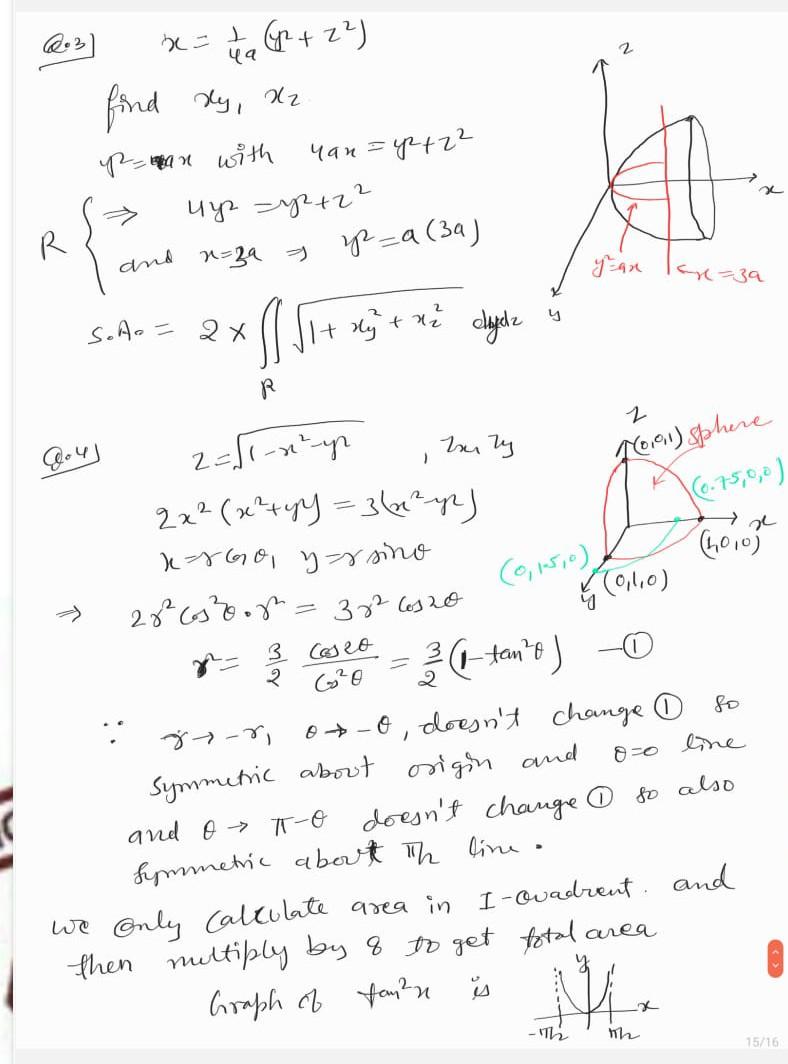 Q.3] x = 1/4a (y² + z²)
find xy, xz
y² = ax with 4ax = y² + z²
R { ⇒ 4y² = y² + z²
and x = 3a ⇒ y² = a(3a)
S.A. = 2 × ∬ √(1 + xy² + xz²) dydz
R
z
x
y
y² = ax
← x = 3a
Q.4] z = √(1 - x² - y²) , zx, zy
2x² (x² + y²) = 3(x² - y²)
x = r cosθ, y = r sinθ
⇒ 2r² cos²θ . r² = 3r² cos2θ
r² = 3/2 cos2θ/cos²θ = 3/2 (1 - tan²θ) —①
z
(0,0,1) sphere
(0.75,0,0)
x
(1,0,0)
(0,1.5,0)
(0,1,0)
y
∵ r → -r, θ → -θ, doesn't change ① so
symmetric about origin and θ=0 line
and θ → π-θ doesn't change ① so also
symmetric about π/2 line.
we only calculate area in I-Quadrent. and
then multiply by 8 to get total area
Graph of tan²x is
y
x
-π/2 π/2
15/16